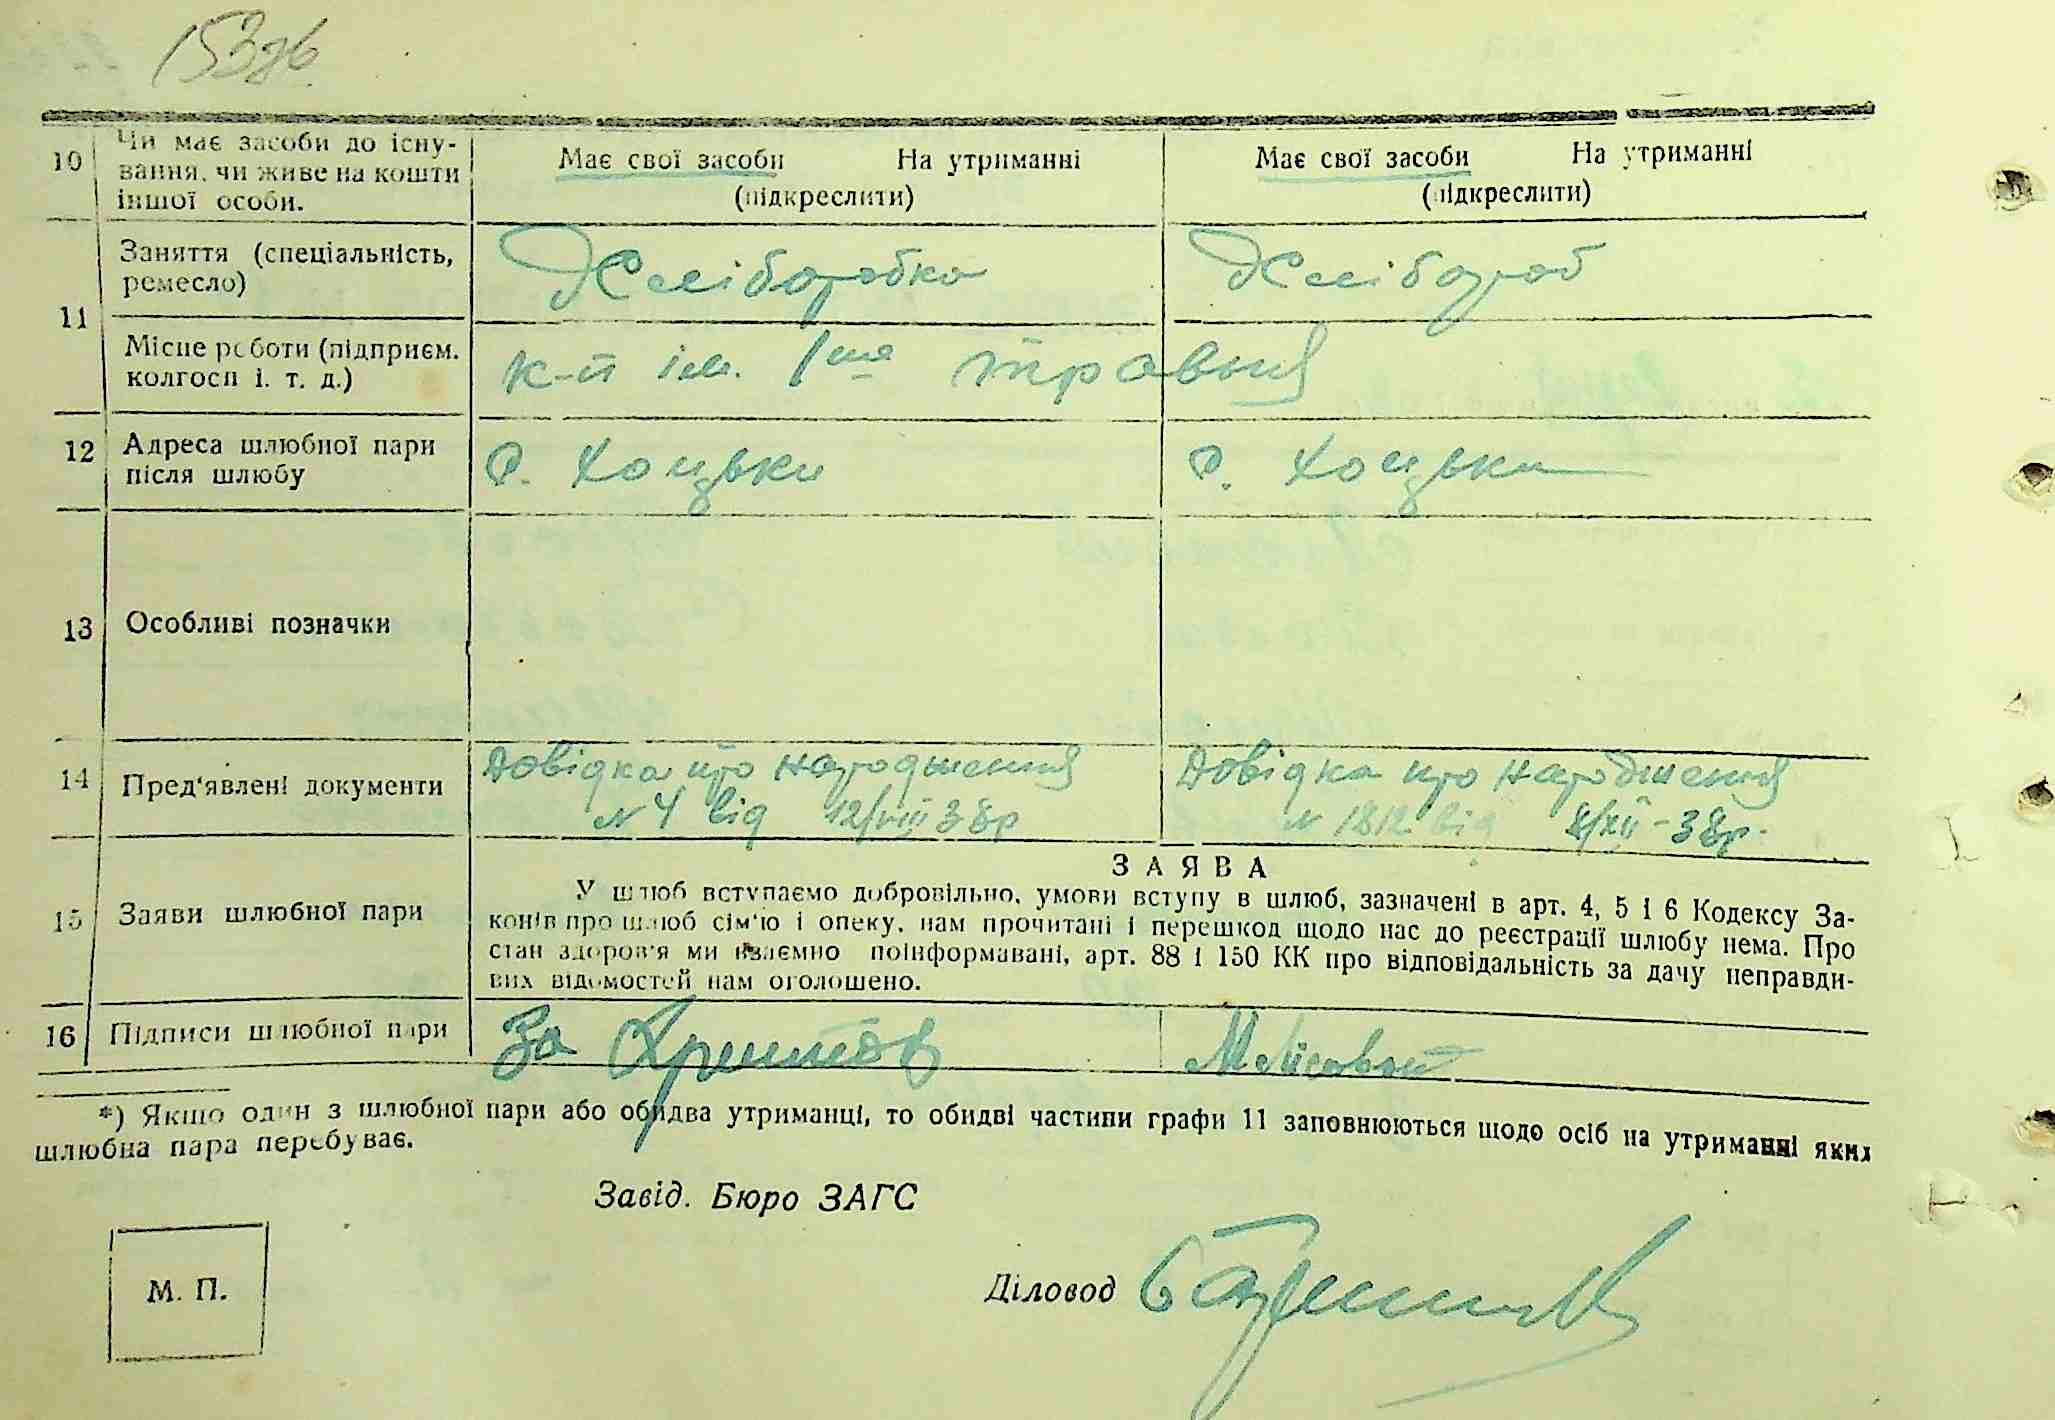 153зв
10 Чи має засоби до існу-
вання, чи живе на кошти
іншої особи.
Має свої засоби На утриманні
(підкреслити)
Має свої засоби На утриманні
(підкреслити)
11 Заняття (спеціальність,
ремесло)
Хліборобка
Хлібороб
Місце роботи (підприєм.
колгосп і. т. д.)
к-п ім. 1го травня
12 Адреса шлюбної пари
після шлюбу
с. Хоцьки
с. Хоцьки
13 Особливі позначки
14 Пред'явлені документи
Довідка про народження
N 4 від 12/VIII 38р
Довідка про народження
N 1812 від 8/XII-38р.
15 Заяви шлюбної пари
ЗАЯВА
У шлюб вступаємо добровільно, умови вступу в шлюб, зазначені в арт. 4, 5 і 6 Кодексу За-
конів про шлюб сім'ю і опеку, нам прочитані і перешкод щодо нас до реєстрації шлюбу нема. Про
стан здоров'я ми взаємно поінформавані, арт. 88 і 150 КК про відповідальність за дачу неправди-
вих відомостей нам оголошено.
16 Підписи шлюбної пари
За
*) Якщо один з шлюбної пари або обидва утриманці, то обидві частини графи 11 заповнюються щодо осіб на утриманні яких
шлюбна пара перебуває.
Завід. Бюро ЗАГС
М. П.
Діловод